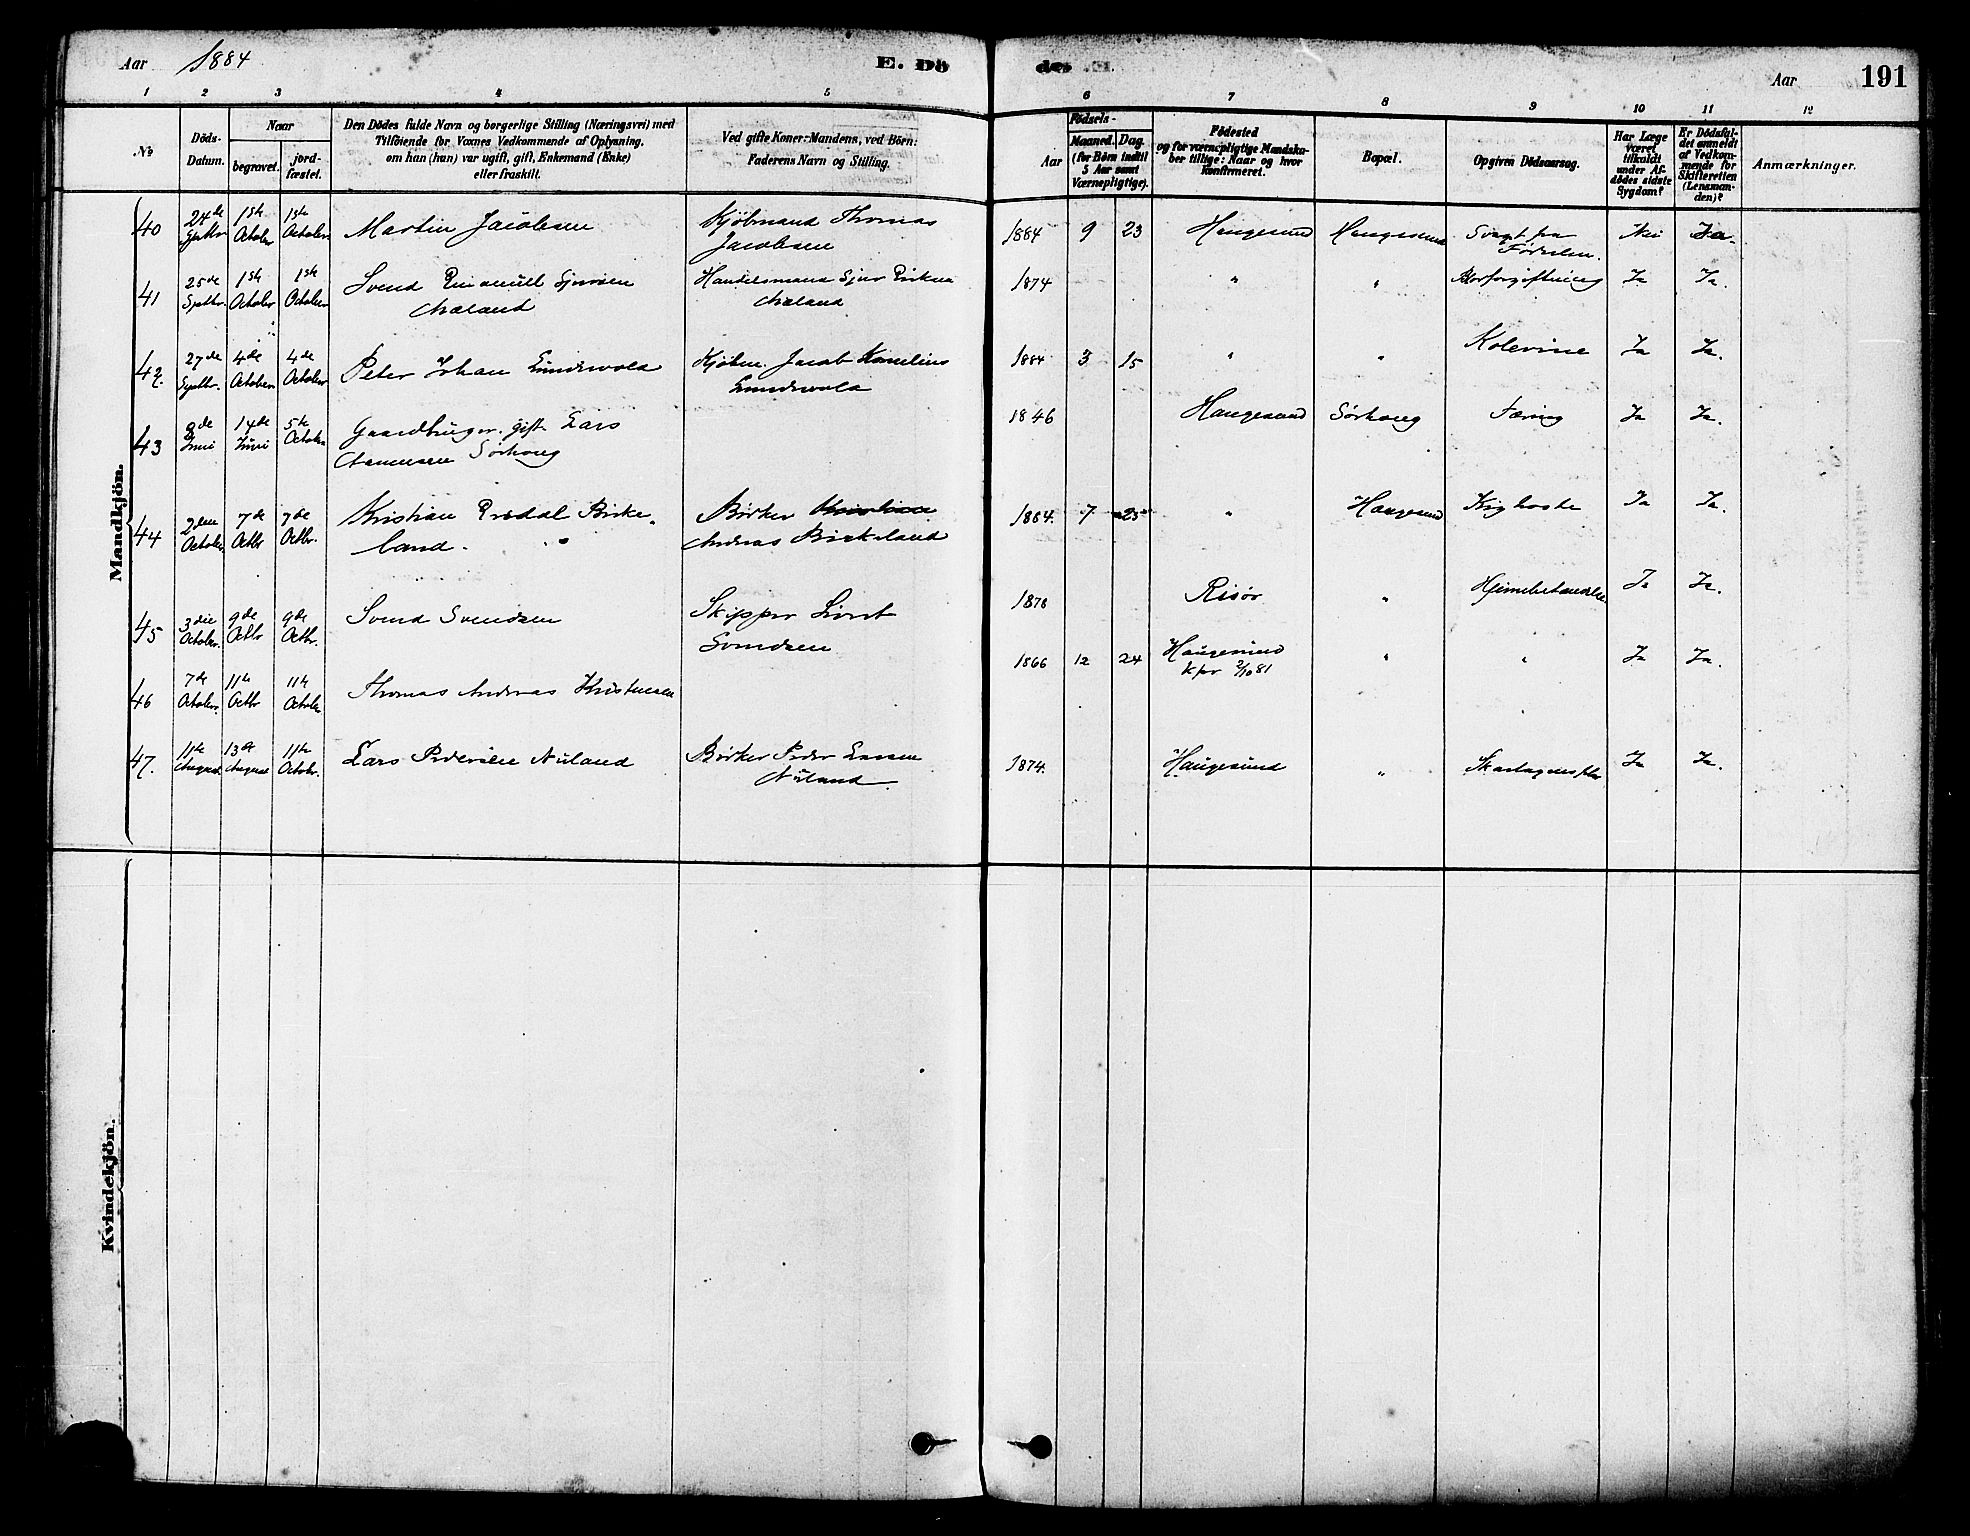 Aar 1884 E. Dö
des E.
Aar 191
1 2 3 4 5 6 7 8 9 10 11 12
No
Döds-
Datum.
Naar
begravet.
jord-
fæstet.
Den Dödes fulde Navn og borgerlige Stilling (Næringsvei) med
Tilföiende for Voxnes Vedkommende af Oplysning,
om han (hun) var ugift, gift, Enkemand (Enke)
eller fraskilt.
Ved gifte Koner: Mandens, ved Börn:
Faderens Navn og Stilling.
Födsels-
Aar
Maaned. Dag.
(for Börn indtil
5 Aar samt
Værnepligtige).
Födested
og for værnepligtige Mandska-
ber tillige: Naar og hvor
konfirmeret.
Bopæl.
Opgiven Dödsaarsag.
Har Læge
været
tilkaldt
under Af-
dödes sidste
Sygdom?
Er Dödsfal-
det anmeldt
af Vedkom-
mende for
Skifteretten
(Lensman-
den)?
Anmærkninger.
Mandkjön.
40 24de Septbr. 1ste October 1ste October Martin Jacobsen Kjøbmand Thomas
Jacobsen
1884 9 23 Haugesund Haugesund Svagt fra
Fødselen. Nei Ja.
41 25de Septbr. 1ste October 1ste October Svend Emanuel Sjursen
Aaland
Handelsmand Sjur Eriksen
Aaland
1874 " " Blodforgiftning Ja Ja.
42. 27de Septbr. 4de October 4de October Peter Johan Lundevold Kjøbm. Jacob Kornelius
Lundevold
1884 3 15 " " Kolerine Ja Ja.
43 9de Juni 14de Juni 5te October Gaardbruger. gift. Lars
Sørhoug
1846 Haugesund Sørhoug Tæring Ja Ja.
44 2den October 7de Octbr 7de Octbr. Kristian Birke-
land.
Bødker
Andreas Birkeland
1884. 7 25 " Haugesund Kighoste Ja Ja.
45 3die October. 9de Octbr 9de Octbr. Svend Svendsen Skipper
Svendsen
1878 Risør " Hjernebetændelse Ja Ja.
46 7de October. 11te Octbr 11te October. Thomas Andreas Kristensen
1866 12 24 Haugesund
2/10 81 " " Ja Ja.
47. 11te August 13de August 11te Octobr. Lars Pedersen Aaland Bødker Peder Larsen
Aaland
1874. Haugesund " Skarlagensfeber Ja Ja.
Kvindekjön.